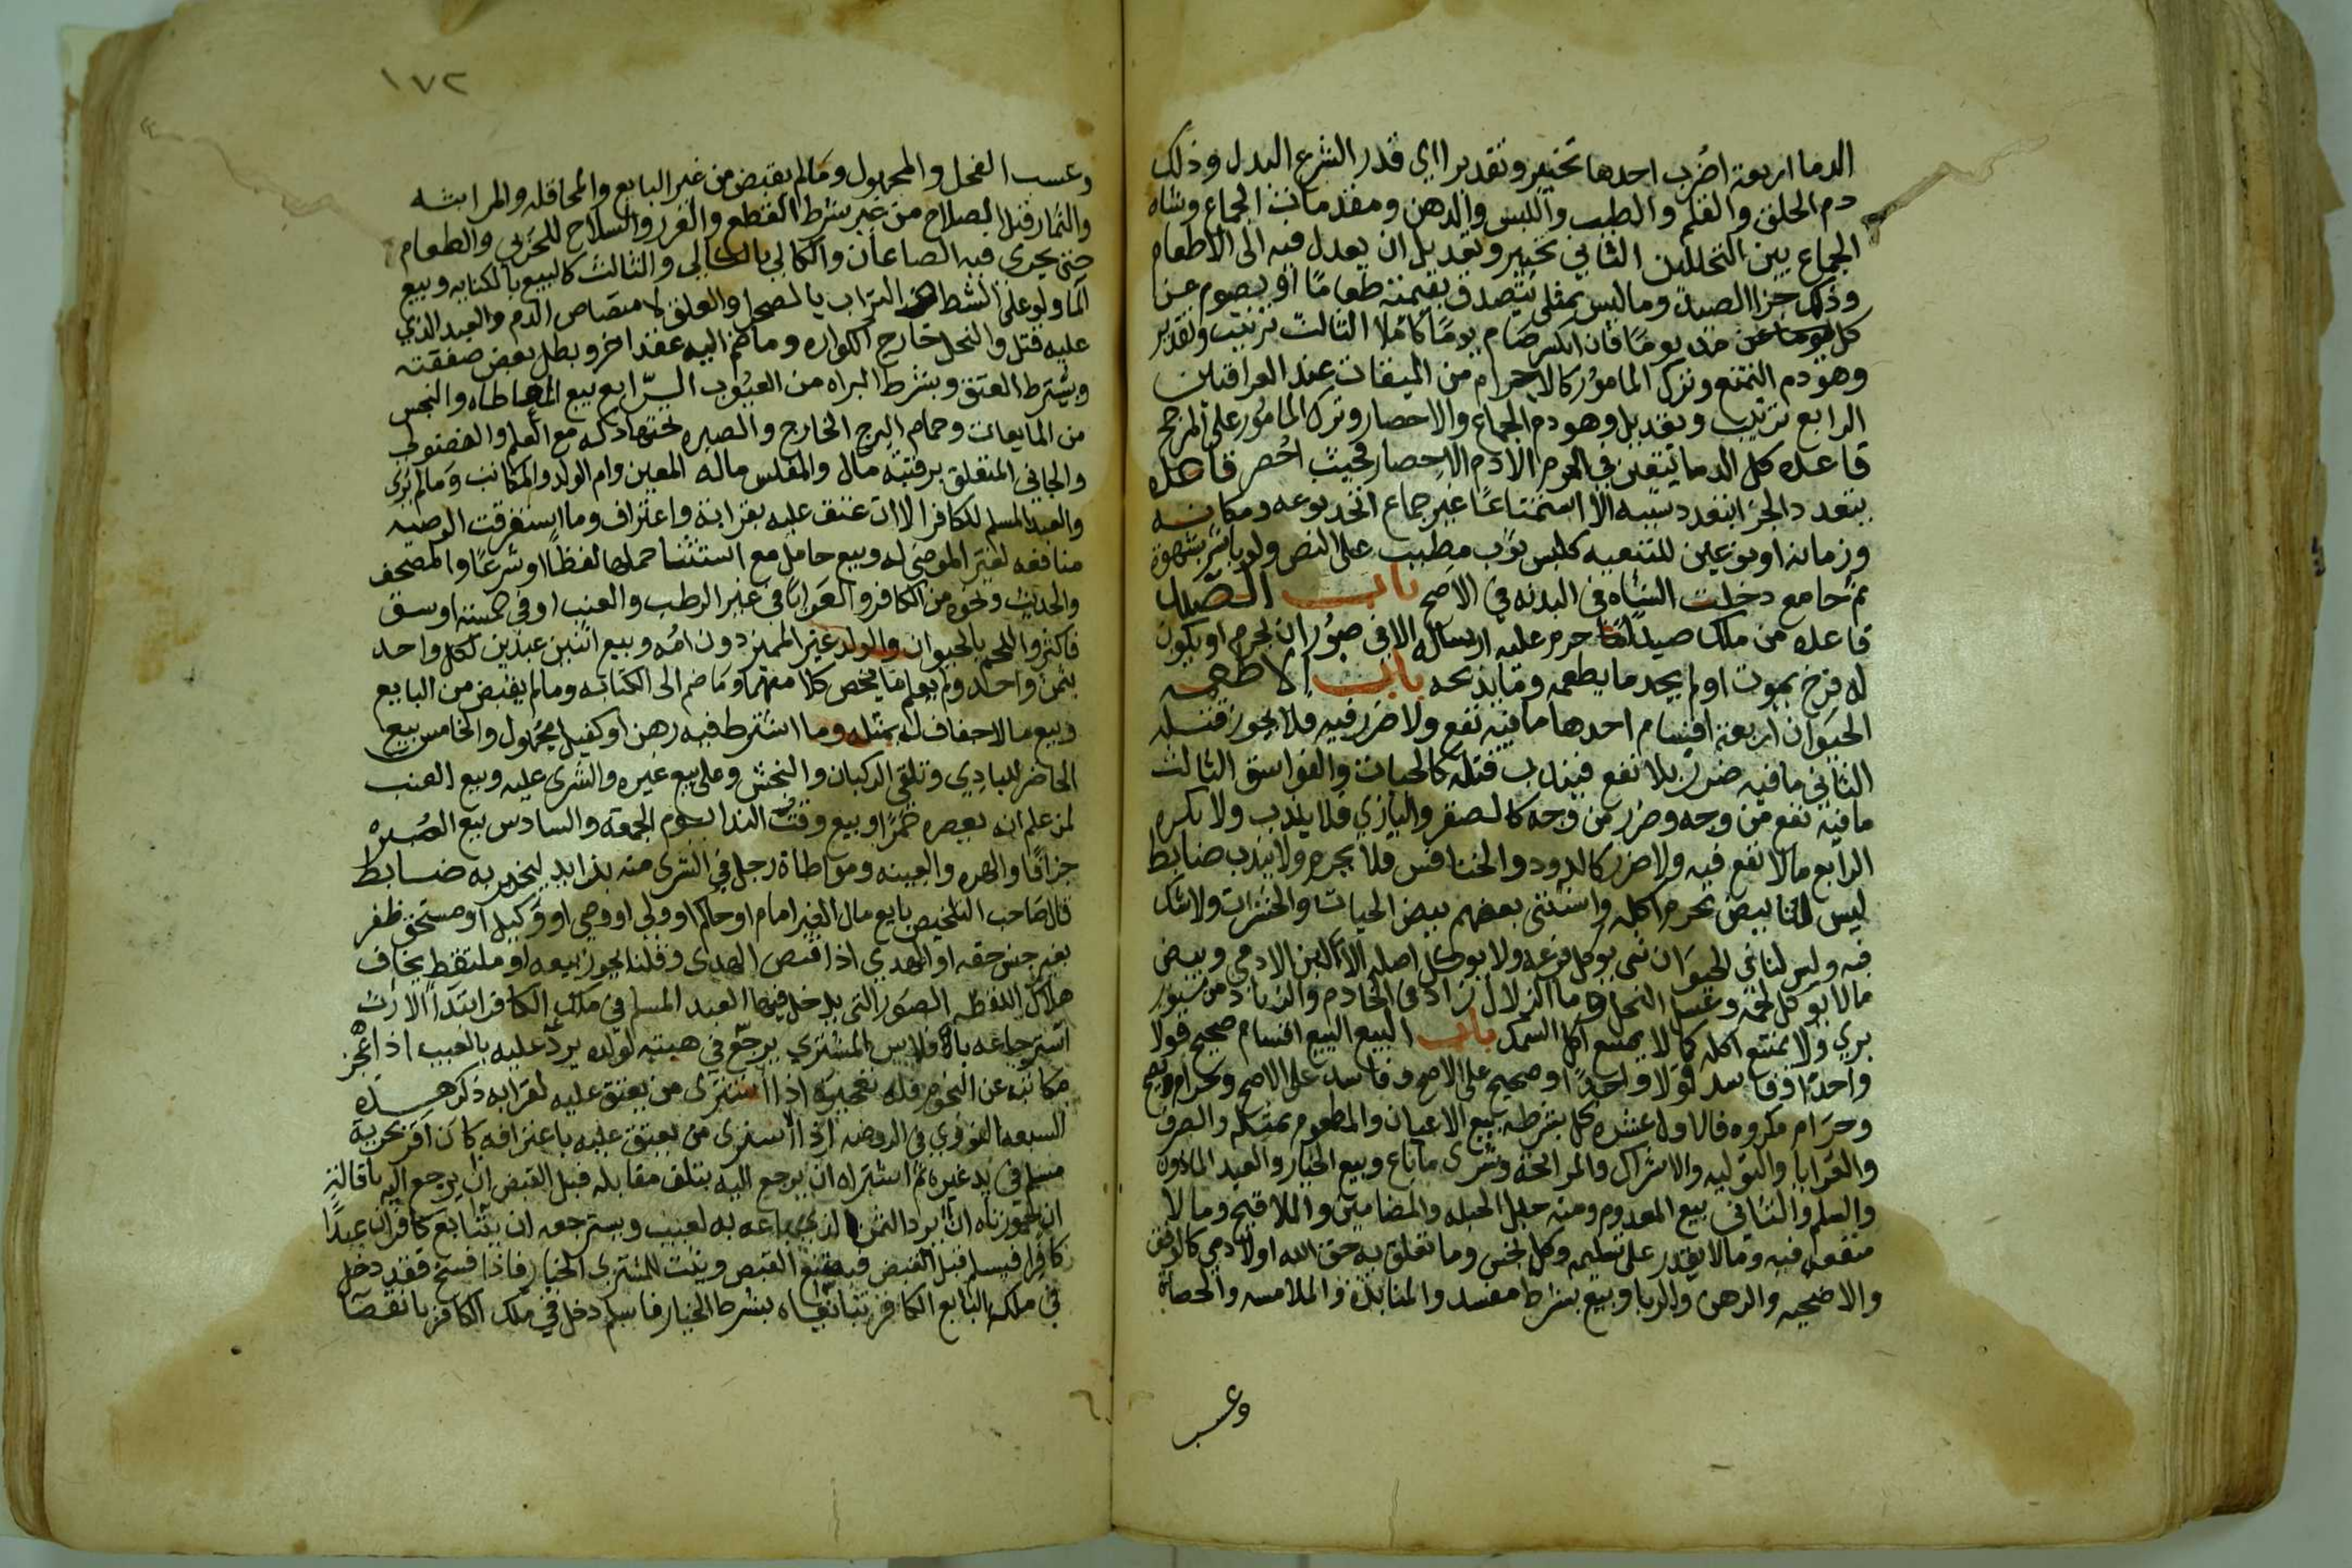 الدما اربعة اضرب احدها تخيير وتقدير اي قدر الشرع البدل وذلك
دم الحلق والقلم والطيب واللبس والدهن ومقدمات الجماع وشاه
الجماع بين التحللين الثاني تخيير وتعديل ان يعدل فيه الى الاطعام
وذلك جزا الصيد وما ليس بمثلي يتصدق بقيمته طعاما او يصوم عن
كل مد يوما فان انكسر صام يوما كاملا الثالث ترتيب وتقدير
وهو دم التمتع وترك المامور كالاحرام من الميقات عند العراقيين
الرابع ترتيب وتعديل وهو دم الجماع والاحصار وترك المامور على المرجح
قاعده كل الدما يتعين في الحرم الا دم الاحصار فحيث احصر قاعده
يتعدد الجزا بتعدد سببه الا استمتاعا غير جماع اتحد نوعه ومكانه
وزمانه او نوعين للتبعيه كلبس ثوب مطيب على النص ولو باشر بشهوة
ثم جامع دخلت الشاه في البدنه في الاصح باب الصيد
قاعده من ملك صيدا حرم عليه ارساله الا في صور ان يحرم او يكون
له فرخ يموت او لم يجد ما يطعمه وما يذبحه باب الاطعمه
الحيوان اربعة اقسام احدها ما فيه نفع ولا ضرر فيه فلا يجوز قتله
الثاني ما فيه ضرر بلا نفع فيندب قتله كالحيات والفواسق الثالث
ما فيه نفع من وجه وضرر من وجه كالصقر والبازي فلا يندب ولا يكره
الرابع ما لا نفع فيه ولا ضرر كالدود والخنافس فلا يحرم ولا يندب ضابط
ليس لنا بيض يحرم اكله واستثنى بعضهم بيض الحيات والحشرات ولا شك
فيه وليس لنا في الحيوان شي يوكل فرعه ولا يوكل اصله الا اللبن الادمي وبيض
ما لا يوكل لحمه وعسل النحل وما الزلال زاد في الخادم والزباد من سنور
بري ولا يمتنع اكله كما لا يمتنع اكل السمك باب البيع البيع اقسام صحيح قولا
واحدا وفاسد قولا واحدا وصحيح على الاصح وفاسد على الاصح وحرام ويصح
وحرام مكروه فالاول عشره كل بشرطه بيع الاعيان والمطعوم بمثله والصرف
والعرايا والتوليه والاشراك والمرابحة وشرى ما باع وبيع الخيار والعبد الماذون
والسلم والثاني بيع المعدوم ومنه حبل الحبله والمضامين والملاقيح وما لا
منفعه فيه وما لا يقدر على تسليمه وكل نجس وما تعلق به حق الله او لادمي كالوقف
والاضحيه والرهن والربا وبيع بشرط مفسد والمنابذة والملامسه والحصاة
وعسب
١٧٢
وعسب الفحل والمجهول وما لم يقبض من غير البايع والمحاقله والمزابنه
والثمار قبل الصلاح من غير شرط القطع والغرر والسلاح للحربي والطعام
حتى يجرى فيه الصاعان والكالي بالكالي والثالث كالبيع بالكنايه وبيع
الما ولو على الشط التراب بالصحرا والعلق لامتصاص الدم والعبد الذي
عليه قتل والنحل خارج الكواره وما ضم اليه عقد اخر وبطل بعض صفقته
وبشرط العتق وبشرط البراه من العيوب الرابع بيع المعاطاه والنجس
من المايعات وحمام البرج الخارج والصبره تحتها دكه مع العلم والفضولي
والجاني المتعلق برقبته مال والمفلس ماله المعين وام الولد والمكاتب وما لم يرى
والعبد المسلم للكافر الا ان عتق عليه بقرابة واعتراف وما استغرقت الوصيه
منافعه لغير الموصى له وبيع حامل مع استثنا حملها لفظا او شرعا والمصحف
والحديث ونحوه من الكافر والعرايا في غير الرطب والعنب او في خمسة اوسق
فاكثر واللحم بالحيوان والولد غير المميز دون امه وبيع اثنين عبدين لكل واحد
بثمن واحد ولم يعلم ما يخص كلا منهما وما ضم الى الكتابه وما لم يقبض من البايع
وبيع ما لا جفاف له بمثله وما اشترط فيه رهن او كفيل مجهول والخامس بيع
الحاضر للبادي وتلقي الركبان والنجش وعلى بيع غيره والشرى عليه وبيع العنب
لمن علم انه يعصره خمرا وبيع وقت الندا يوم الجمعة والسادس بيع الصبره
جزافا والهره والعينه ومواطاة رجل في الشرى منه بزايد ليخبر به ضابط
قال صاحب التلخيص بايع مال الغير امام او حاكم او ولي او وصي او وكيل او مستحق ظفر
بغير جنس حقه او المهدي اذا قبض الهدى وقلنا يجوز بيعه او ملتقط يخاف
هلاك اللقطه الصور التي يدخل فيها العبد المسلم في ملك الكافر ابتدا الارث
استرجاعه بافلاس المشتري يرجع في هبته لولده يرد عليه بالعيب اذا عجز
مكاتبه عن النجوم فله تعجيزه اذا اشترى من يعتق عليه لقرابه ذكر هذه
السبعه النووي في الروضه اذا اشترى من يعتق عليه باعترافه كان اقر بحرية
مسلم في يد غيره ثم اشتراه ان يرجع اليه بتلف مقابله قبل القبض ان يرجع اليه باقالة
ان جوزناه ان يرد الثمن الذي باعه به لعيب ويسترجعه ان يتبايع كافران عبدا
كافرا فيسلم قبل القبض فيمتنع القبض ويثبت للمشتري الخيار فاذا فسخ فقد دخل
في ملك البايع الكافر تبايعاه بشرط الخيار فاسلم دخل في ملك الكافر بانقضا